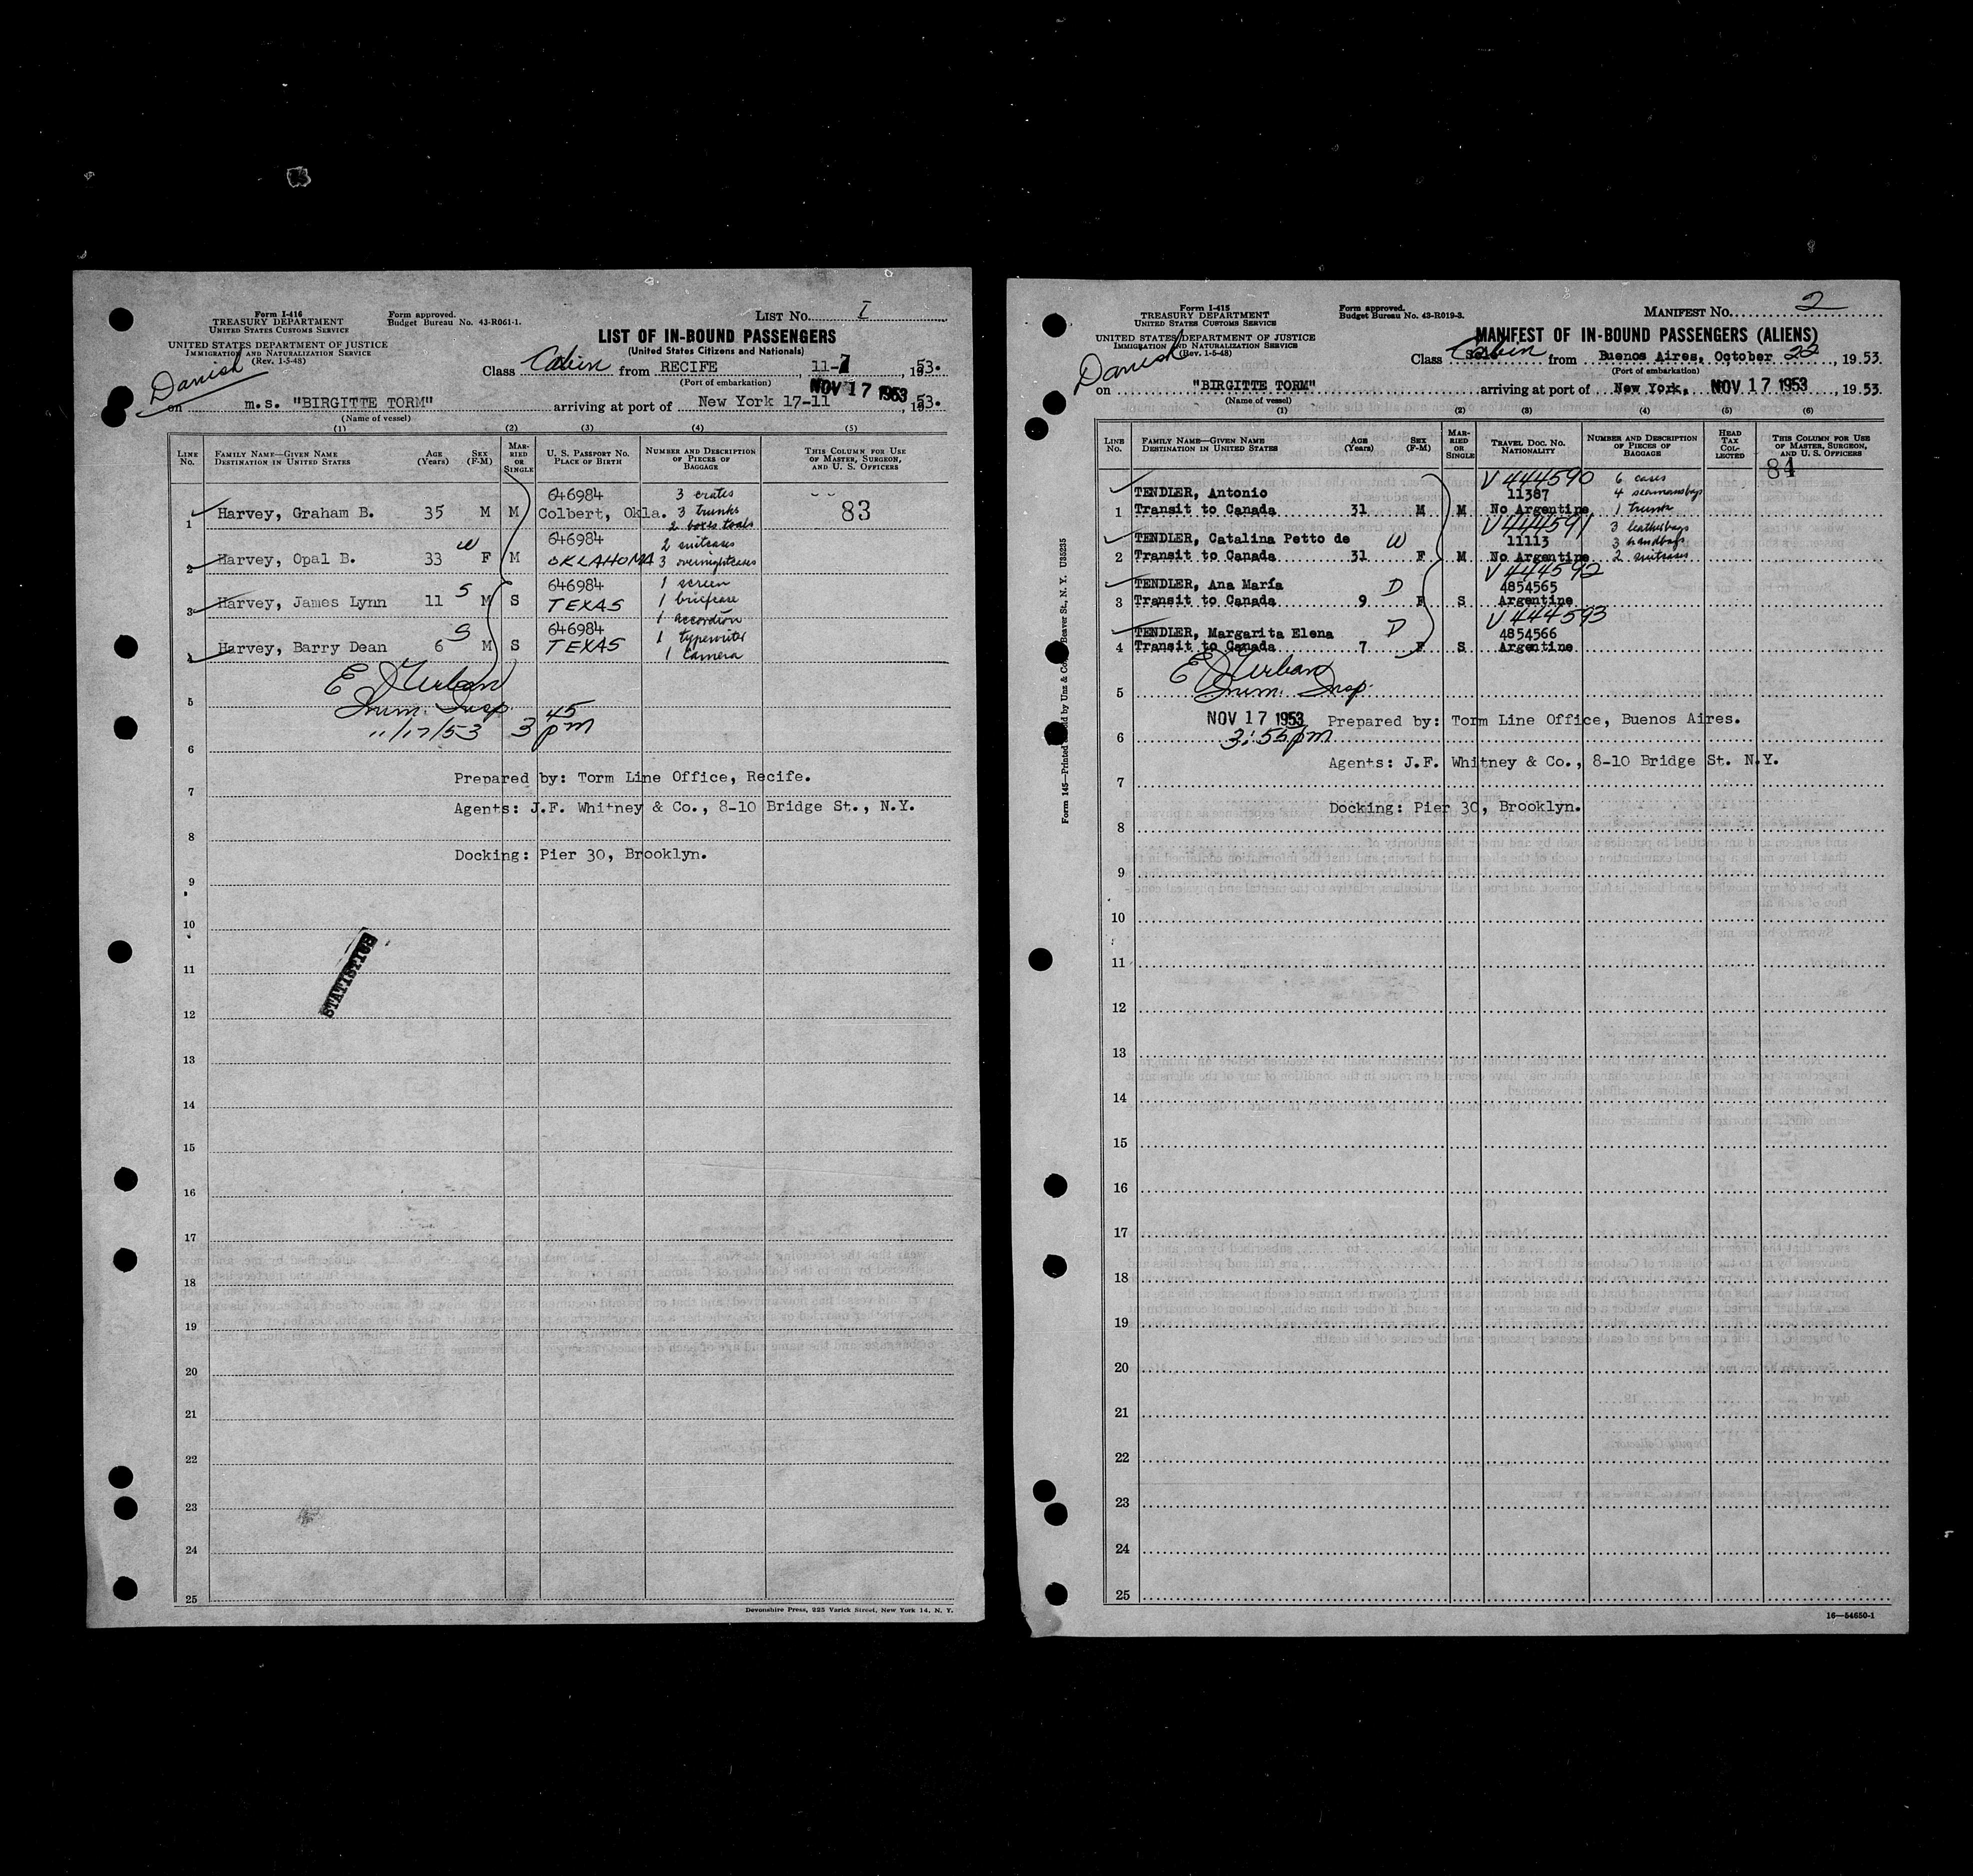 Form I-416
TREASURY DEPARTMENT
UNITED STATES CUSTOMS SERVICE
UNITED STATES DEPARTMENT OF JUSTICE
IMMIGRATION AND NATURALIZATION SERVICE
(Rev. 1-5-48)
Form approved.
Budget Bureau No. 43-R061-1.
LIST NO. I
LIST OF IN-BOUND PASSENGERS
(United States Citizens and Nationals)
Danish
Class Cabin from RECIFE, 11-7, 1953.
(Port of embarkation)
NOV 17 1953
on m.s. "BIRGITTE TORM" arriving at port of New York 17-11, 1953.
(Name of vessel)
(1) (2) (3) (4) (5)
LINE NO. FAMILY NAME—GIVEN NAME DESTINATION IN UNITED STATES AGE (Years) SEX (F-M) MARRIED OR SINGLE U. S. PASSPORT NO. PLACE OF BIRTH NUMBER AND DESCRIPTION OF PIECES OF BAGGAGE THIS COLUMN FOR USE OF MASTER, SURGEON, AND U. S. OFFICERS
646984 3 crates
1 Harvey, Graham B. 35 M M Colbert, Okla. 3 trunks 83
2 boxes tools
646984 2 suitcases
2 Harvey, Opal B. 33 W F M OKLAHOMA 3 overnightcases
646984 1 screen
3 Harvey, James Lynn 11 S M S TEXAS 1 briefcase
1 accordion
646984 1 typewriter
4 Harvey, Barry Dean 6 S M S TEXAS 1 camera
E J Urban
Imm. Insp
11/17/53 3 45 pm
5
6
Prepared by: Torm Line Office, Recife.
7
Agents: J.F. Whitney & Co., 8-10 Bridge St., N.Y.
8
Docking: Pier 30, Brooklyn.
9
10
STATISTICS
11
12
13
14
15
16
17
18
19
20
21
22
23
24
25
Devonshire Press, 225 Varick Street, New York 14, N. Y.
Form I-415
TREASURY DEPARTMENT
UNITED STATES CUSTOMS SERVICE
UNITED STATES DEPARTMENT OF JUSTICE
IMMIGRATION AND NATURALIZATION SERVICE
(Rev. 1-5-48)
Form approved.
Budget Bureau No. 43-R019-3.
MANIFEST NO. 2
MANIFEST OF IN-BOUND PASSENGERS (ALIENS)
Danish
Class Cabin from Buenos Aires, October 22, 1953.
(Port of embarkation)
on "BIRGITTE TORM" arriving at port of New York, NOV 17 1953, 1953.
(Name of vessel)
(1) (2) (3) (4) (5) (6)
LINE NO. FAMILY NAME—GIVEN NAME DESTINATION IN UNITED STATES AGE (Years) SEX (F-M) MARRIED OR SINGLE TRAVEL DOC. NO. NATIONALITY NUMBER AND DESCRIPTION OF PIECES OF BAGGAGE HEAD TAX COLLECTED THIS COLUMN FOR USE OF MASTER, SURGEON, AND U. S. OFFICERS
84
V 444590 6 cases
TENDLER, Antonio 11387 4 seamansbags
1 Transit to Canada 31 M M No Argentine 1 trunk
V 444591 3 leatherbags
TENDLER, Catalina Petto de W 11113 3 handbags
2 Transit to Canada 31 F M No Argentine 2 suitcases
V 444592
TENDLER, Ana María D 4854565
3 Transit to Canada 9 F S Argentine
V 444593
TENDLER, Margarita Elena D 4854566
4 Transit to Canada 7 F S Argentine
E J Urban
5 Imm. Insp.
NOV 17 1953 Prepared by: Torm Line Office, Buenos Aires.
6 3:55 pm
Agents: J.F. Whitney & Co., 8-10 Bridge St. N.Y.
7
Docking: Pier 30, Brooklyn.
8
9
10
11
12
13
14
15
16
17
18
19
20
21
22
23
24
25
16—54650-1